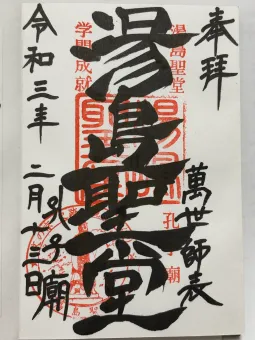 奉拝
萬世師表
湯島聖堂
孔子廟
湯島聖堂
学問成就
令和三年
二月十三日
孔子廟